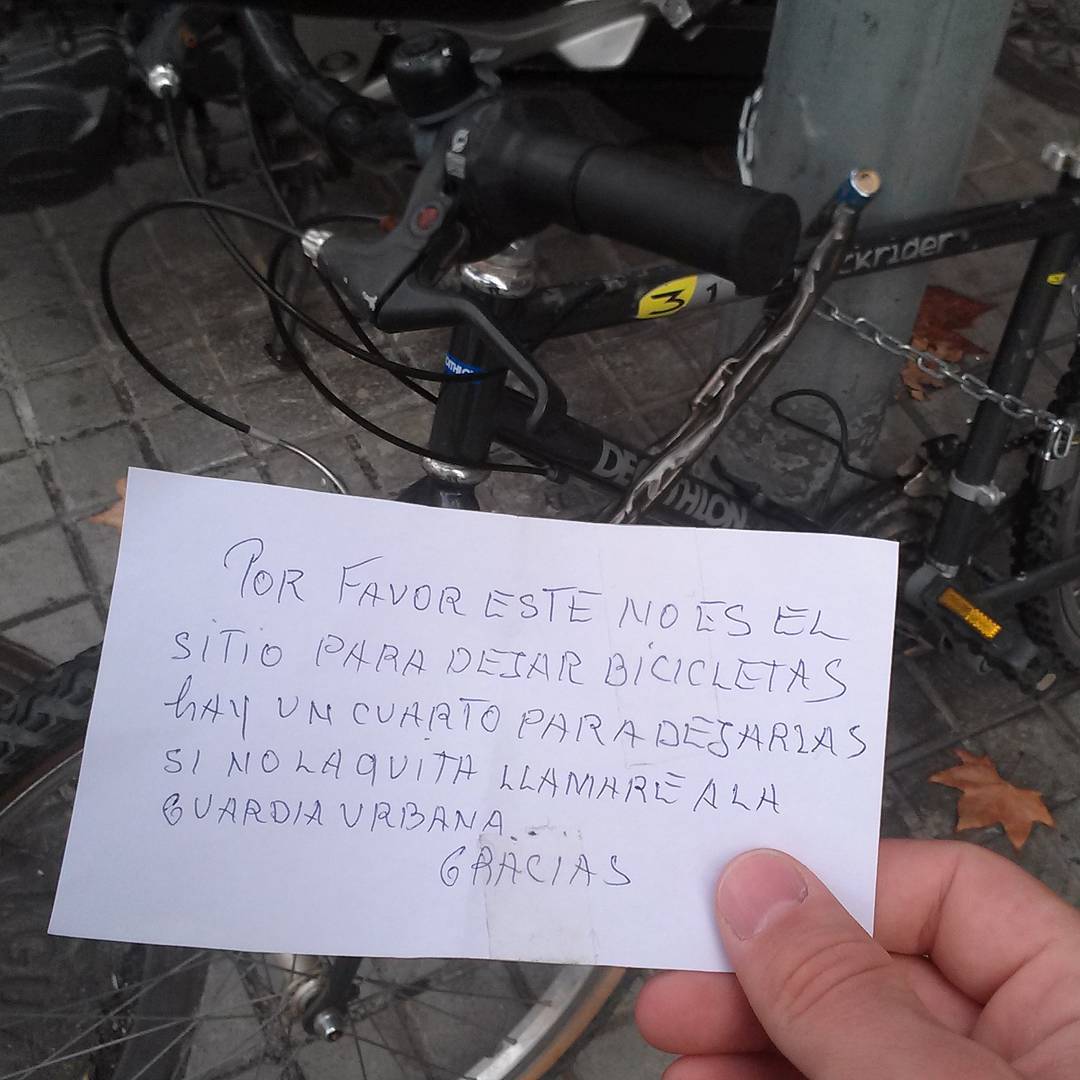 ckrider
3 1
DECATHLON
POR FAVOR ESTE NO ES EL
SITIO PARA DEJAR BICICLETAS
hAY UN CUARTO PARA DEJARLAS
SI NO LA QUITA LLAMARÉ A LA
GUARDIA URBANA
GRACIAS